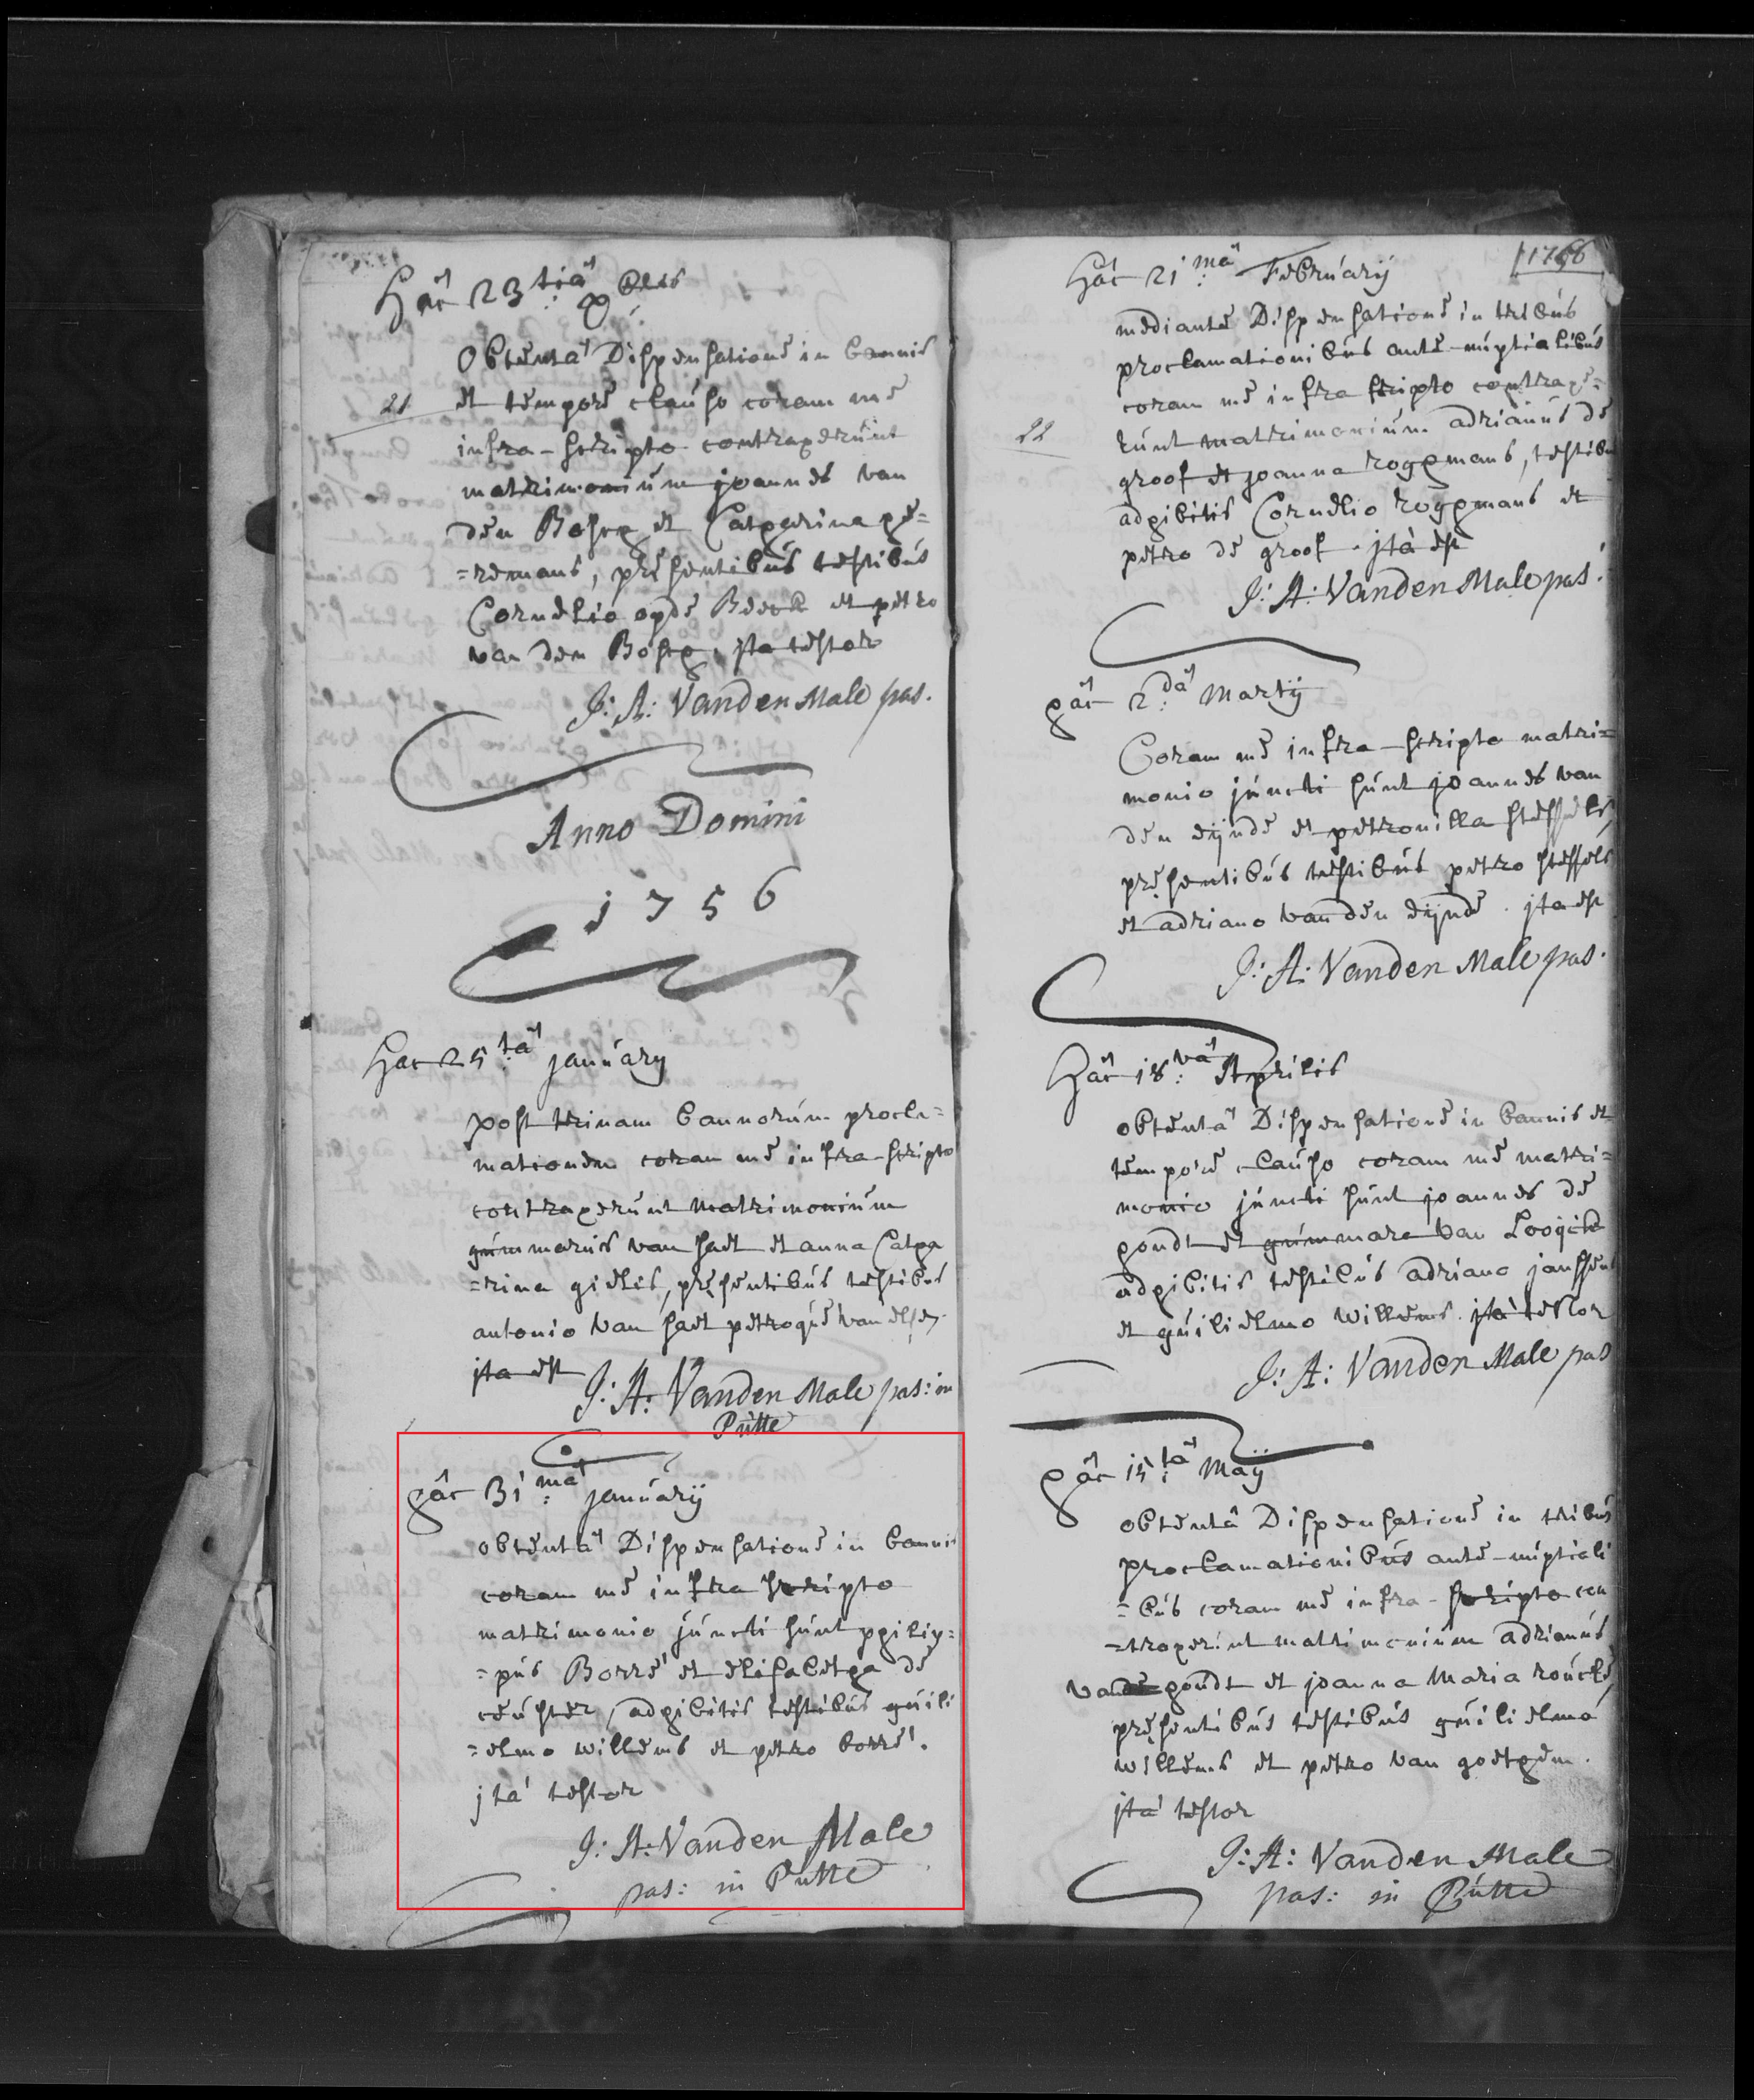 Hâc 23 tiâ Xbris
Obtentâ Dispensatione in bannis
et tempore clauso coram me
21
infra-scripto contraxerunt
matrimonium joannes van
den Bosch et Catharina he=
=remans, præsentibus testibus
Cornelio op de Beeck et petro
van den Bosch. jta testor
J: A: Vanden Male pas.
Anno Domini
1756
Hac 25 tâ januarij
post trinam bannorum procla=
mationem coram me infra-scripto
contraxerunt matrimonium
gummarus van haet et anna Catha
=rina gielis, præsentibus testibus
antonio van haet petroque van elsen.
jta est J: A: Vanden Male pas: in
Putte
hâc 31 mâ januarij
obtentâ Dispensatione in bannis
coram me infra scripto
matrimonio juncti sunt philip=
=pus Borré et elisabetha de
ceuster, adhibitis testibus guili
=elmo willems et petro borré.
jtá testor
J: A: Vanden Male
pas: in Putte
1756
Hâc 21 mâ February
mediante Dispensatione in tribus
proclamationibus ante-nuptialibus
coram me infra scripto contraxe=
22
runt matrimonium adrianus de
groof et joanna roghmans, testibus
adhibitis Cornelio roghmans et
petro de groof. jtà est
J: A: Vanden Male pas.
hâc 2 dâ Martij
Coram me infra-scripto matri=
monio juncti sunt joannes van
den eijnde et petronilla steffels,
præsentibus testibus petro steffels
et adriano van den eijnde. jta est
J: A: Vanden Male pas.
Hâc 18 vâ Aprilis
obtentâ Dispensatione in bannis et
tempore clauso coram me matri=
monio juncti sunt joannes de
hondt et gummara van Looÿ
adhibitis testibus adriano janssens
et guilielmo willems. jtà testor
J: A: Vanden Male pas
hâc 15 tâ Maij
obtentâ Dispensatione in tribus
proclamationibus ante-nuptiali
=bus coram me infra-scripto con
=traxerunt matrimonium adrianus
van hondt et joanna Maria
præsentibus testibus guilielmo
willems et petro van goethem.
jtá testor
J: A: Vanden Male
pas: in Putte